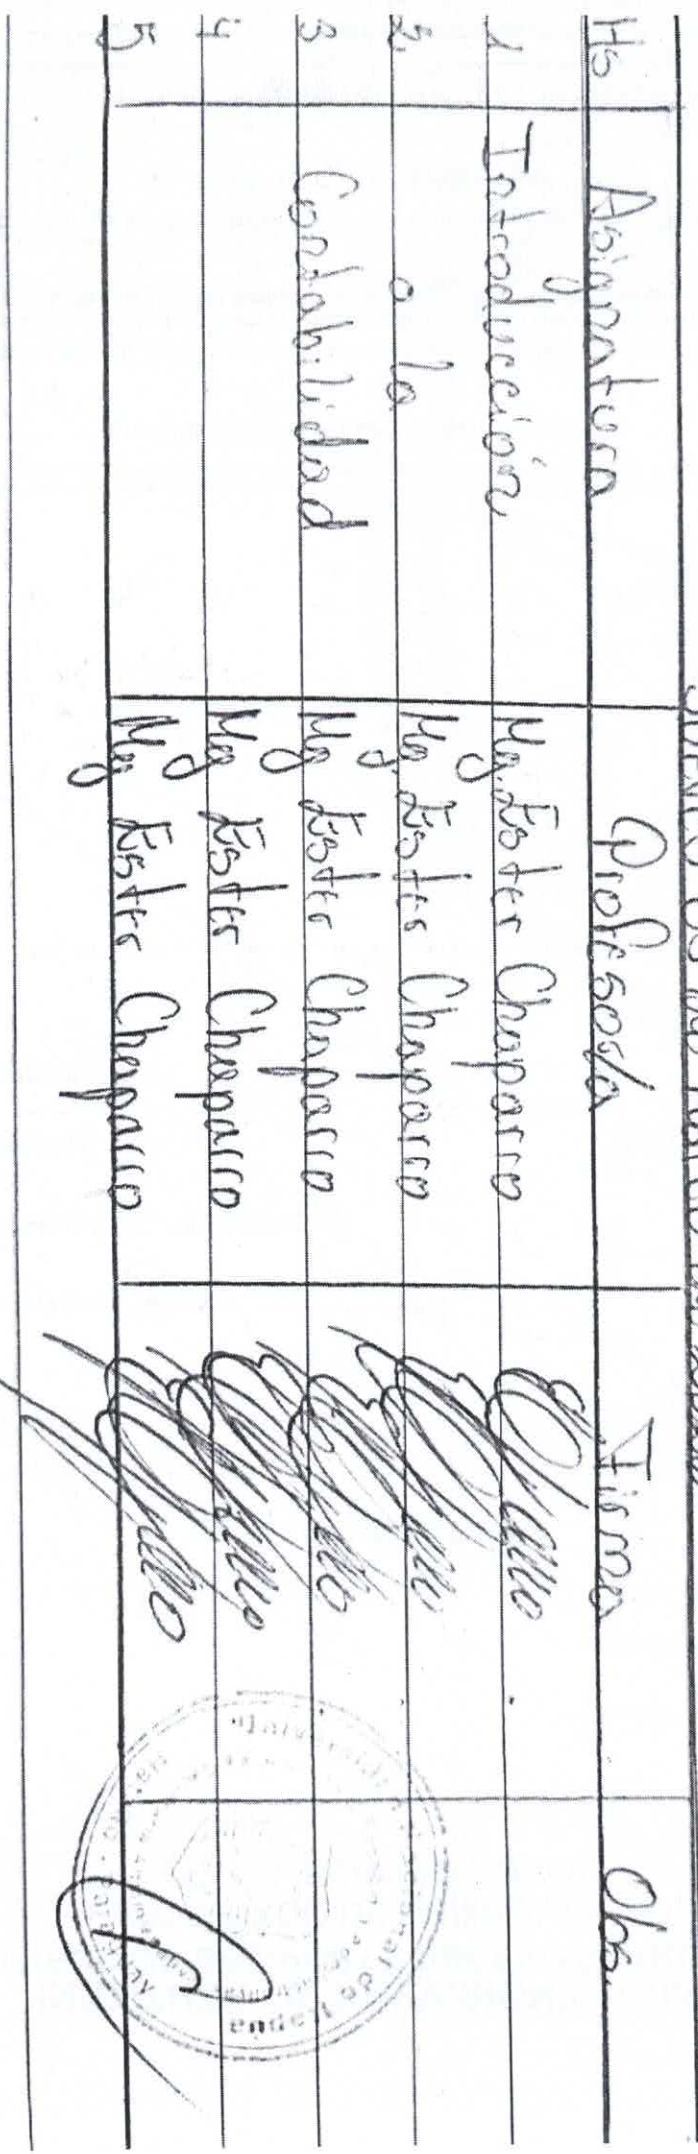 Hs Asignatura Profesor/a Firma Obs.
1 Introducción Mg. Ester Chaparro
2 a la Mg. Ester Chaparro
3 Contabilidad Mg Ester Chaparro
4 Mg Ester Chaparro
5 Mg Ester Chaparro